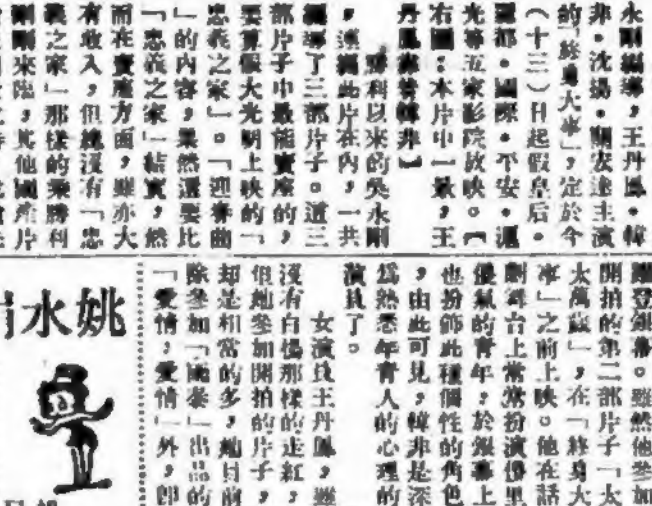 永剛編導，王丹鳳，韓
非，沈揚，關宏達主演
的「終身大事」，定於今
（十三）日起假皇后，
麗都，國際，平安，滬
光等五家影院放映。【
右圖：本片中一景，王
丹鳳寄韓非】
勝利以來的吳永剛
，連編此片在內，一共
編導了三部片子。這三
部片子中最能賣座的，
要算假大光明上映的「
忠義之家」。「迎春曲
」的內容，果然還要比
「忠義之家」結實，然
而在賣座方面，雖亦大
有收入，但總沒有「忠
義之家」那樣的乘勝利
剛剛來臨，其他國產片
躍登銀幕。雖然他參加
開拍的第二部片子「太
太萬歲」，在「終身大
事」之前上映。他在話
劇舞台上常常扮演傻里
傻氣的青年，於銀幕上
也扮飾此種個性的角色
，由此可見，韓非是深
爲熟悉年青人的心理的
演員了。
女演員王丹鳳，雖
沒有白楊那樣的走紅，
但她參加開拍的片子，
却是相當的多，她目前
除參加「國泰」出品的
「愛情，愛情」外，卽
姚水